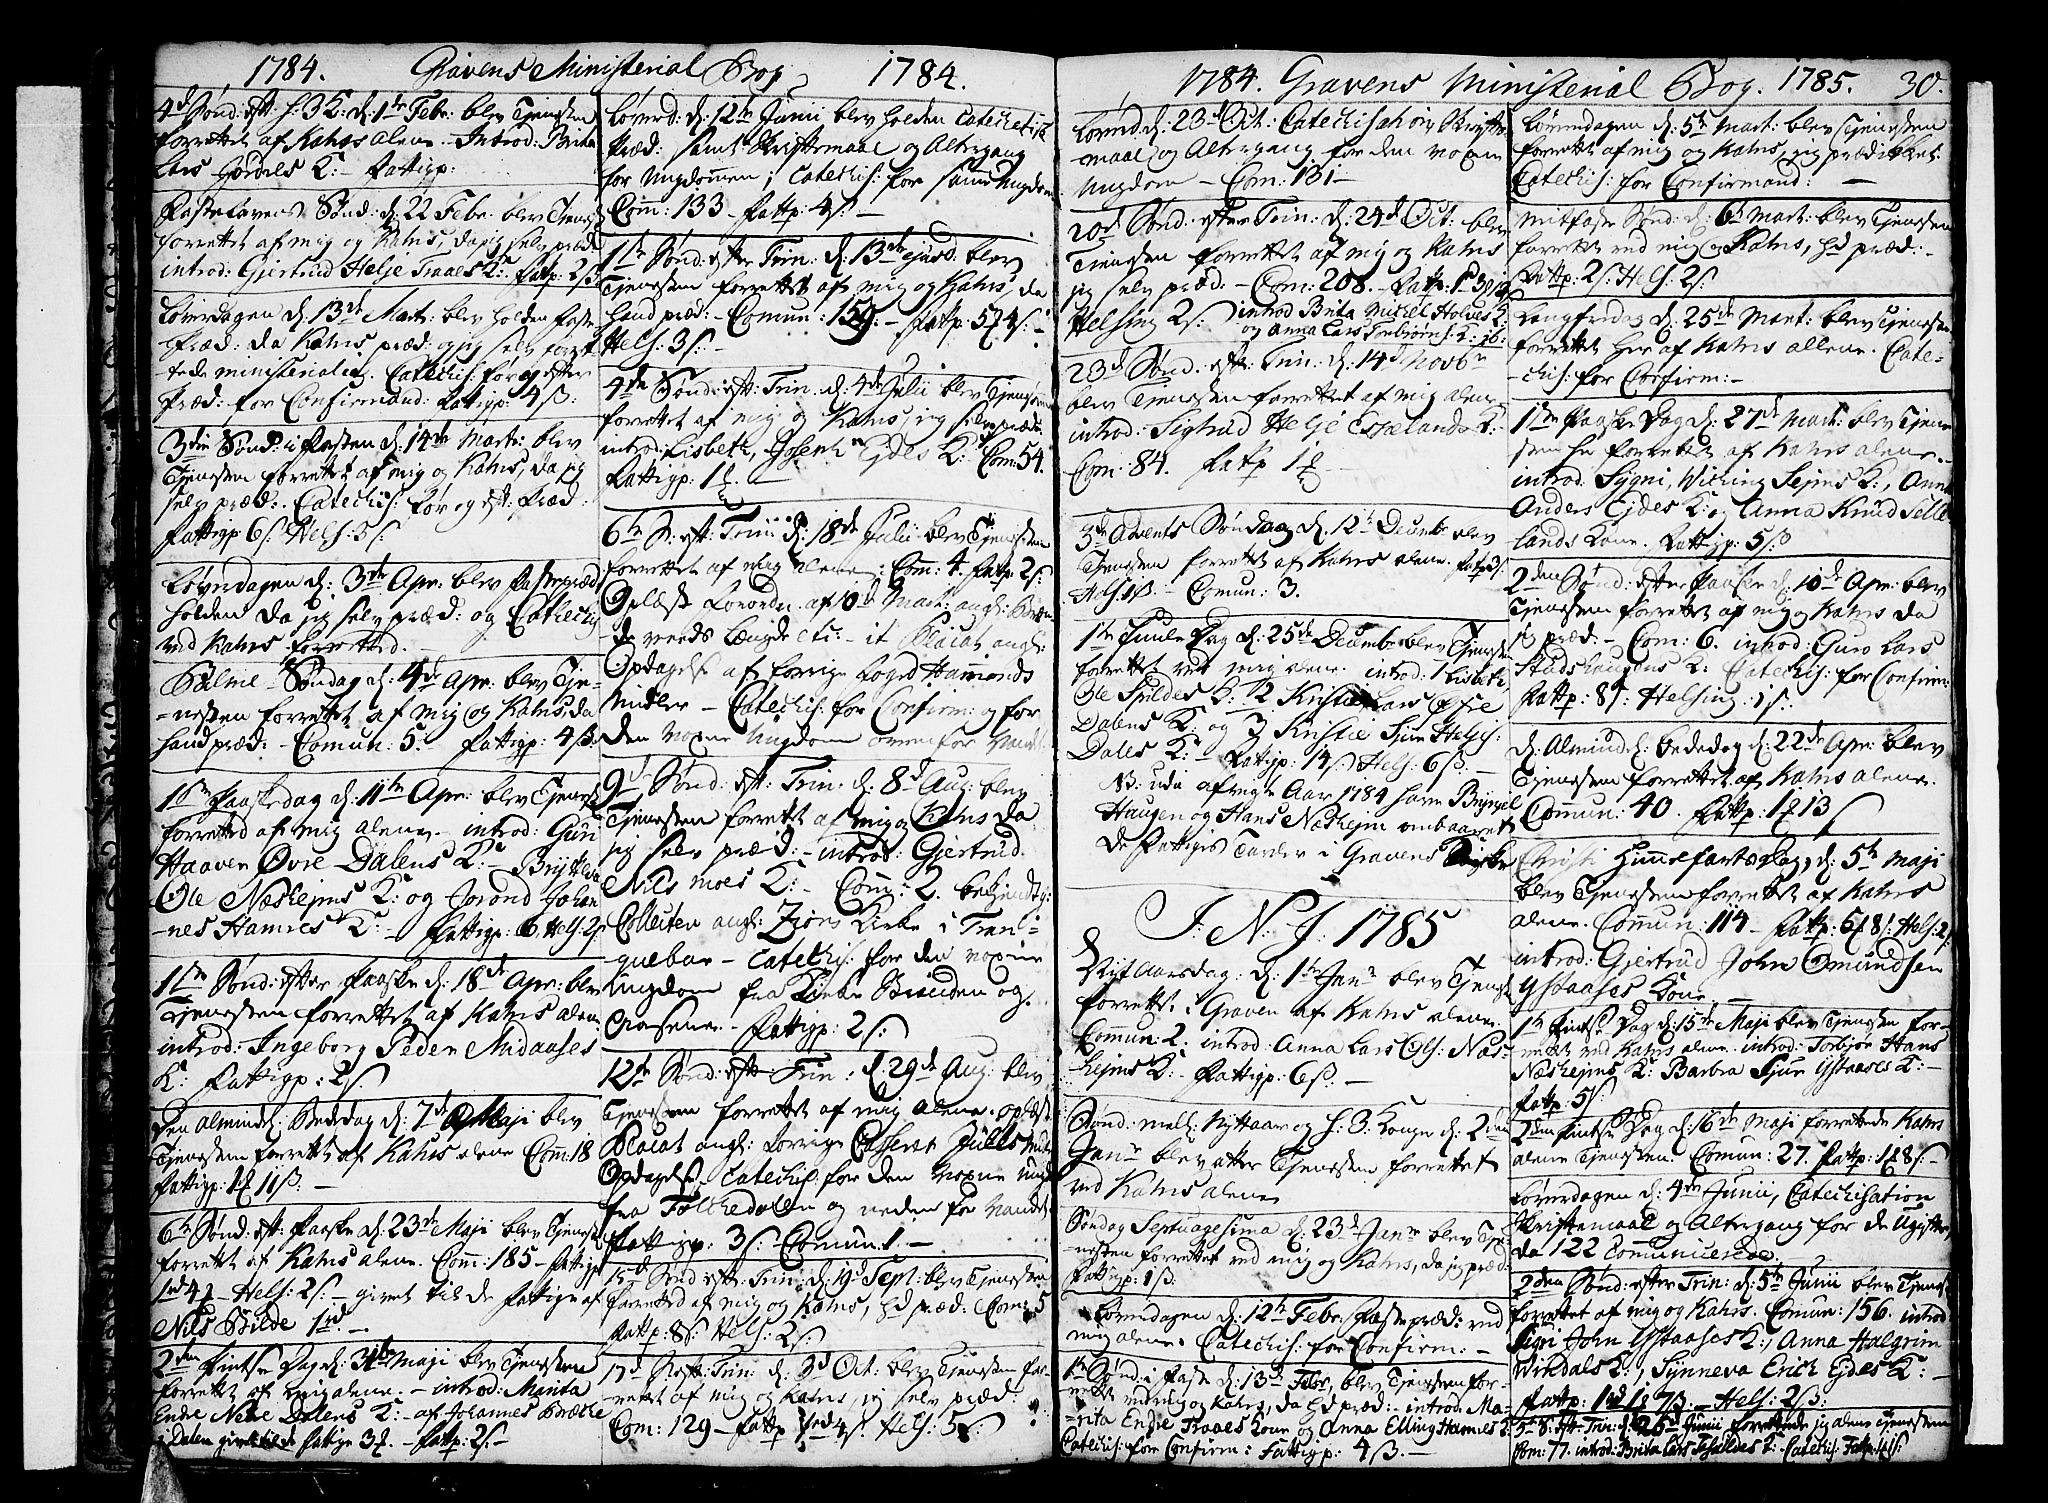 1784. Gravens Ministerial Bog 1784.
4de Sønd: eft: h. 3 K: d: 1de Febr: blev Tjenesten
forrettet af Kahrs alene. Introd: Brita
Lars Jørdels K: - Fattigp:
Fastelavens Sønd: d: 22 Febr: blev Tjenest
forrettet af mig og Kahrs, da jeg selv præd:
introd: Gjertrud Helje Traaes K: Fatp: 2ß:
Løverdagen d: 13de Mart: blev holden Faste
Præd: da Kahrs præd: og jeg selv forret
tede ministerialia. Catechis: før og efter
Præd: for Confirmand: Fattigp: 4ß:
3die Sønd: i Fasten d: 14de Mart: blev
Tjenesten forrettet af mig og Kahrs, da jeg
selv præd: Catechis: før og eft: Præd:
Fattigp 6ß Hels: 3ß:
Løverdagen d: 3de Apr: blev Fastepræd
holden da jeg selv præd: og Catechis
ved Kahrs forretted. -
Palme-Søndag d: 4de Apr: blev Tje-
-nesten forrettet af mig og Kahrs, da
hand præd: - Comun: 5. Fattigp: 4ß:
1ste Paaskedag d: 11te Apr: blev Tjenest
forretted af mig alene. - introd: Guri
Haaver Øvre Dalens K: Brytteva
Ole Næshejms K: og Jorond Johan
-nes Hamres K: - Fattigp: 6. Hels: 2ß
1ste Sønd: efter Paaske d: 18de Apr: blev
Tjenesten forrettet af Kahrs alene
introd: Ingeborg Peder Midaases
K: Fattigp: 2ß
Den almindel: Bededag d: 7de Maji blev
Tjenesten forrettet af Kahrs alene Com: 18
Fattigp: 11ß: -
6te Sønd: eft: Paaske d: 23de Maji blev Tjenest
forrettet af Kahrs alene. Com: 185 - Fattigp
Hels: 2ß: - givet til de Fattige af
Nils Bilde 1rd. -
2den Pintse Dag d: 31te Maji blev Tjenesten
forrettet af mig alene. - introd: Marita
Endre Nedre Dalens K: - af Johannes
i Dalen givet til de Fattige - Fatp: 2ß: -
Løverd: d: 12te Junii blev holden Catechetisk
Præd: samt Skriftemaal og Altergang
for Ungdommen; Catechis: for samme Ungdom
Com: 133 - Fattp: 4ß: -
1ste Sønd: efter Trin: d: 13de ejusd: blev
Tjenesten forrettet af mig og Kahrs, da
hand præd: - Comun: 159: - Fattp:
Hels: 3ß: -
4de Sønd: eft: Trin: d: 4de Julii blev Tjenesten
forrettet af mig og Kahrs, jeg selv præd:
introd: Lisbeth, Joseph Ejdes K: Com: 54
Fattigp:
6te S: eft: Trin: d: 18de Julii blev Tjenesten
forrettet af mig alene: Com: 4. Fatp: 2ß:
Oplæst Forordn: af 10de Mart: ang:
de veeds Længde etc: - it Placat ang:
Opdagelse af forrige Foged Hammonds
Midler - Catechis: for Confirm: og for
den voxne Ungdom ovenfor Vandet
9de Sønd: eft: Trin: d: 8de Aug: blev
Tjenesten forrettet af mig og Kahrs da
jeg selv præd: - introd: Gjertrud
Nils Moes K: - Com: 2. bekjendtg:
Collecten ang: Zions Kirke i Tran-
quebar - Catechis: for den voxne
Ungdom fra Kirke og
Fattigp: 2ß:
12te Sønd: eft: Trin: d: 29de Aug: blev
Tjenesten forrettet af mig alene. oplæst
Placat ang: forrige Casserer Jülls
Opdagelse. Catechis: for den Voxne
fra Folkedalen og neden for Vandet.
Fattigp: 3ß: Comun: 1. -
15de Sønd: eft: Trin: d: 19de Sept: blev Tjenesten
forretted af mig og Kahrs, hd præd: Com: 5
Fattp: 8ß: Hels: 2ß:
17de S: eft: Trin: d: 3de Oct: blev Tjenesten for-
rettet af mig og Kahrs, jeg selv præd:
Com: 129 - Fattp 4ß: Hels: 5ß:
1784. Gravens Ministerial Bog. 1785. 30.
Løverd: d: 23de Oct: Catechisation Skrifte-
maal og Altergang for den voxne
Ungdom - Com: 131 -
20de Sønd: efter Trin: d: 24de Oct: blev
Tjenesten forrettet af mig og Kahrs
jeg selv præd: - Com: 208. - Fatp:
Helsing 2ß: introd Brita Michel Holves K:
og Anna Lars K:
23de Sønd: eft: Trin: d: 14de Novbr
blev Tjenesten forrettet af mig alene
introd: Sigtrud Helje Espelands K:
Com: 84. Fatp
3die Advents Søndag d: 12te Decembr blev
Tjenesten forrettet af Kahrs alene.
Hels: 1ß: - Comun: 3.
1ste Juule Dag d: 25de Decembr blev Tjenesten
forrettet ved mig alene. introd: 1 Lisbeth
Ole Spildes K: 2 Kristie Lars
Dalens K: og 3 Kristie Sjur Heljes:
Dales K: - Fattigp: 14ß Hels: 6ß: -
NB: udi afvigte Aar 1784 have Brynjel
Haugen og Hans Næshejm ombaaret
de Fattiges Tavler i Gravens Kirke
J. N. J: 1785
Nyt Aarsdag: d: 1ste Janr blev Tjenest
forrettet i Graven af Kahrs alene.
Comun: 2. introd: Anna Lars Ols: Næs-
hejms K: - Fattigp: 6ß: -
Sønd: mell: Nyttaar og h: 3: Konge d: 2den
Janr blev atter Tjenesten forrettet
ved Kahrs alene
Søndag Septuagesima d: 23de Janr blev Tje-
nesten forrettet ved mig og Kahrs, da jeg præd:
Fattigp: 1ß:
Løverdagen d: 12te Febr: Fastepræd: ved
mig alene. Catechis: for Confirm: -
1ste Sønd: i Faste d: 13de Febr, blev Tjenesten for-
rettet ved mig og Kahrs, da hd præd: - introd: Ma-
-rita Endre Traaes Kone og Anna Elling Hamres K:
Catechis: for Confirm: Fattigp: 4ß: -
Løverdagen d: 5te Mart: blev Tjenesten
forrettet af mig og Kahrs, jeg prædikket.
Catechis: for Confirmand: -
Mitfaste Sønd: d: 6te Mart: blev Tjenesten
forrettet ved mig og Kahrs, hd præd: -
Fattp: 2ß: Hels: 2ß:
Langfredag d: 25de Mart: blev Tjenesten
forrettet her af Kahrs allene. Cate-
-chis: for Confirm: -
1ste Paaske Dag d: 27de Mart: blev Tjene
sten her forrettet af Kahrs alene. -
introd: Sygni, Wiching Sejms K:, Anna
Anders Ejdes K: og Anna Knud Telle
lands Kone. Fattigp: 5ß
2den Sønd: efter Paaske d: 10de Apr: blev
Tjenesten forrettet af mig og Kahrs da
jeg præd: - Com: 6. introd: Guro Lars
Stadshaugens K: Catechis: for Confirm:
Fattp: 8ß: Helsing: 1ß:
d: Almindel: Bededag d: 22de Apr: blev
Tjenesten forrettet af Kahrs alene.
Comun: 40. Fattp: 13ß
Christi Himmelfartsdag, d: 5te Maji
blev Tjenesten forrettet af Kahrs
alene. Comun: 114 - Fattp: Hels: 2ß:
introd: Gjertrud John Omundsen
Ystaases Kone -
1ste Pintse Dag d: 15de Maji blev Tjenesten for-
rettet ved Kahrs alene. introd: Torbjør Hans
Næshejms K: Barbra Sjur Ystaases K: -
Fattp: 5ß:
2den Pintse Dag d: 16de Maji forrettede Kahrs
alene Tjenesten. Comun: 27. Fattp: 8ß: -
Løverdagen d: 4de Junii, Catechisation
Skriftemaal og Altergang for de Ugifte,
da 122 Comunicerede.
2den Sønd: efter Trin: d: 5te Junii blev Tjenest
forrettet af mig og Kahrs. Comun: 156. introd
Sigri John Ystaases K:, Anna Halgrim
Windals K:, Synneva Erich Ejdes K: -
Fattp: - Hels: 2ß:
5te S: eft: Trin: d: 26de Junii forrettede jeg alene Tjenesten
Com: 77. introd: Brita Lars K: - Catechis: Fattp: